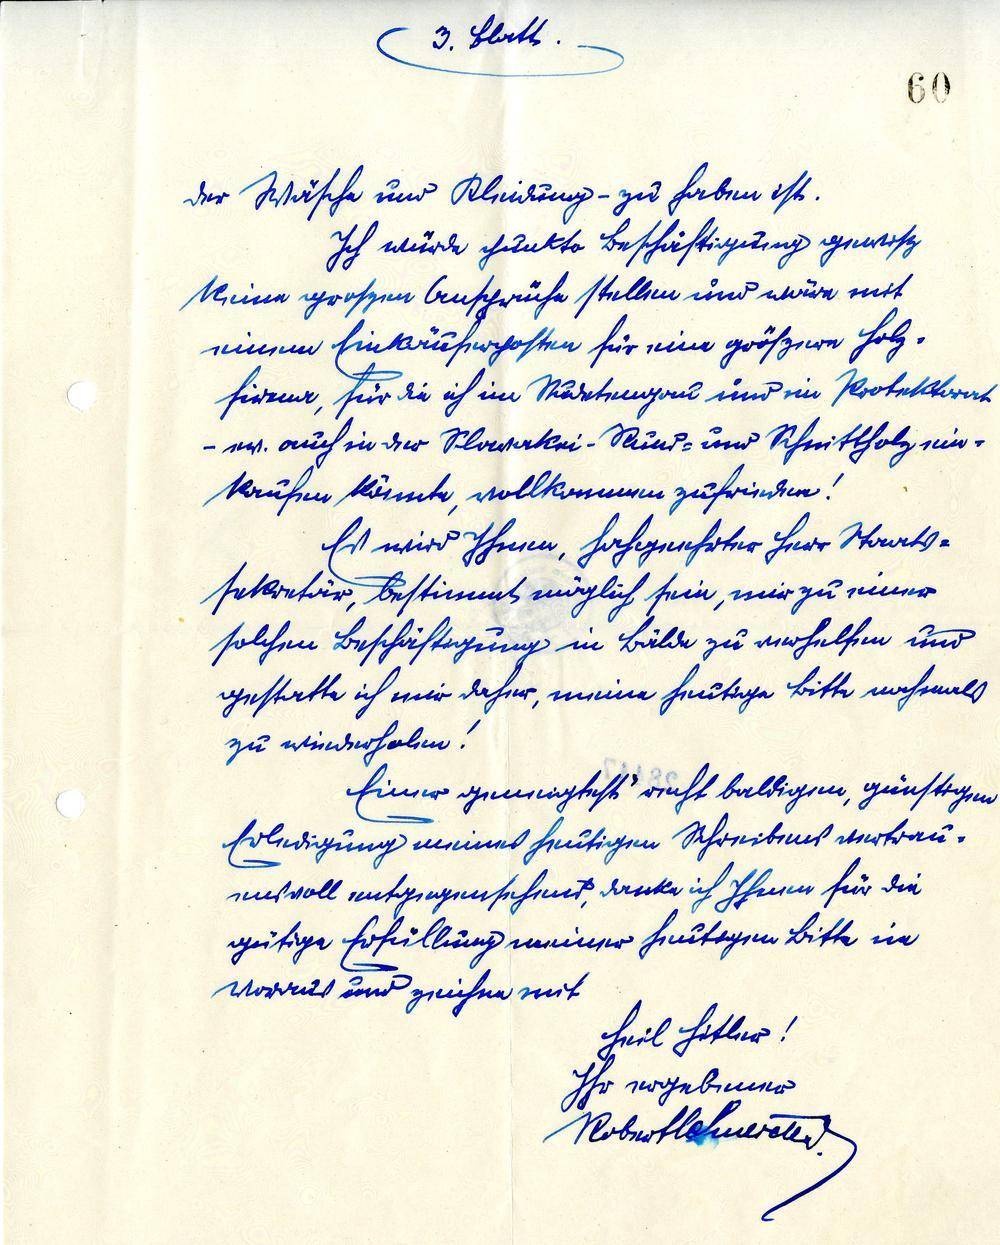 3. Blatt.
60
der Wäsche und Kleidung - zu haben ist.
Ich würde punkto Beschäftigung gewiß
keine großen Ansprüche stellen und wäre mit
einem Einkäuferposten für eine größere Holz-
firma, für die ich im Sudetengau und im Protektorat
- ev. auch in der Slowakei - Rund- und Schnittholz ein-
kaufen könnte, vollkommen zufrieden!
Es wird Ihnen, hochgeehrter Herr Staats-
sekretär, bestimmt möglich sein, mir zu einer
solchen Beschäftigung in Bälde zu verhelfen und
gestatte ich mir daher, meine heutige Bitte nochmals
zu wiederholen!
Einer geneigtest recht baldigen, günstigen
Erledigung meines heutigen Schreibens vertrau-
ensvoll entgegensehend, danke ich Ihnen für die
gütige Erfüllung meiner heutigen Bitte im
voraus und zeichne mit
Heil Hitler!
Ihr ergebener
Robert